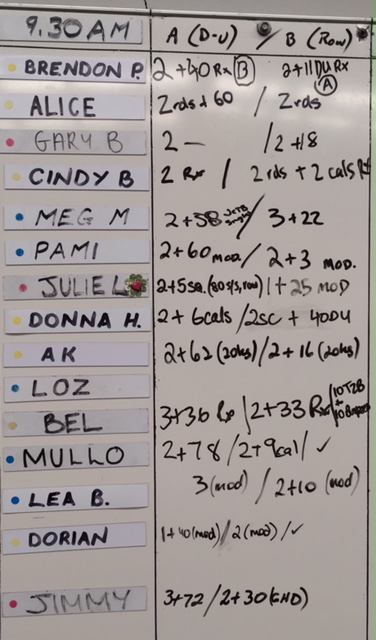 9.30 AM A (D-U) / B (Row)
BRENDON P. 2+40 Rx (B) 2+11DU Rx (A)
ALICE 2rds + 60 / 2rds
GARY B 2 — / 2+18
CINDY B 2 Rx / 2 rds + 2 cals Rx
MEG M 2+58 / 3+22
PAMI 2+60 mod. / 2+3 MOD.
JULIE L 2+5sq. 1+25 MOD
DONNA H. 2+6cals / 2sc + 40DU
AK 2+62 (20kgs) / 2+16 (20kgs)
LOZ
BEL 3+36 Rx / 2+33 Rx / 10T2B + 10
MULLO 2+78 / 2+9cal / ✓
LEA B. 3 (mod) / 2+10 (mod)
DORIAN 1+40 (mod) / 2 (mod) / ✓
JIMMY 3+72 / 2+30 (GHD)